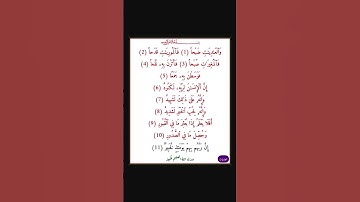 وَالْعَادِيَاتِ ضَبْحاً (1) فَالْمُورِيَاتِ قَدْحاً (2)
فَالْمُغِيرَاتِ صُبْحاً (3) فَأَثَرْنَ بِهِ نَقْعاً (4)
فَوَسَطْنَ بِهِ جَمْعاً (5)
إِنَّ الْإِنْسَانَ لِرَبِّهِ لَكَنُودٌ (6)
وَإِنَّهُ عَلَى ذَلِكَ لَشَهِيدٌ (7)
وَإِنَّهُ لِحُبِّ الْخَيْرِ لَشَدِيدٌ (8)
أَفَلَا يَعْلَمُ إِذَا بُعْثِرَ مَا فِي الْقُبُورِ (9)
وَحُصِّلَ مَا فِي الصُّدُورِ (10)
إِنَّ رَبَّهُمْ بِهِمْ يَوْمَئِذٍ لَخَبِيرٌ (11)